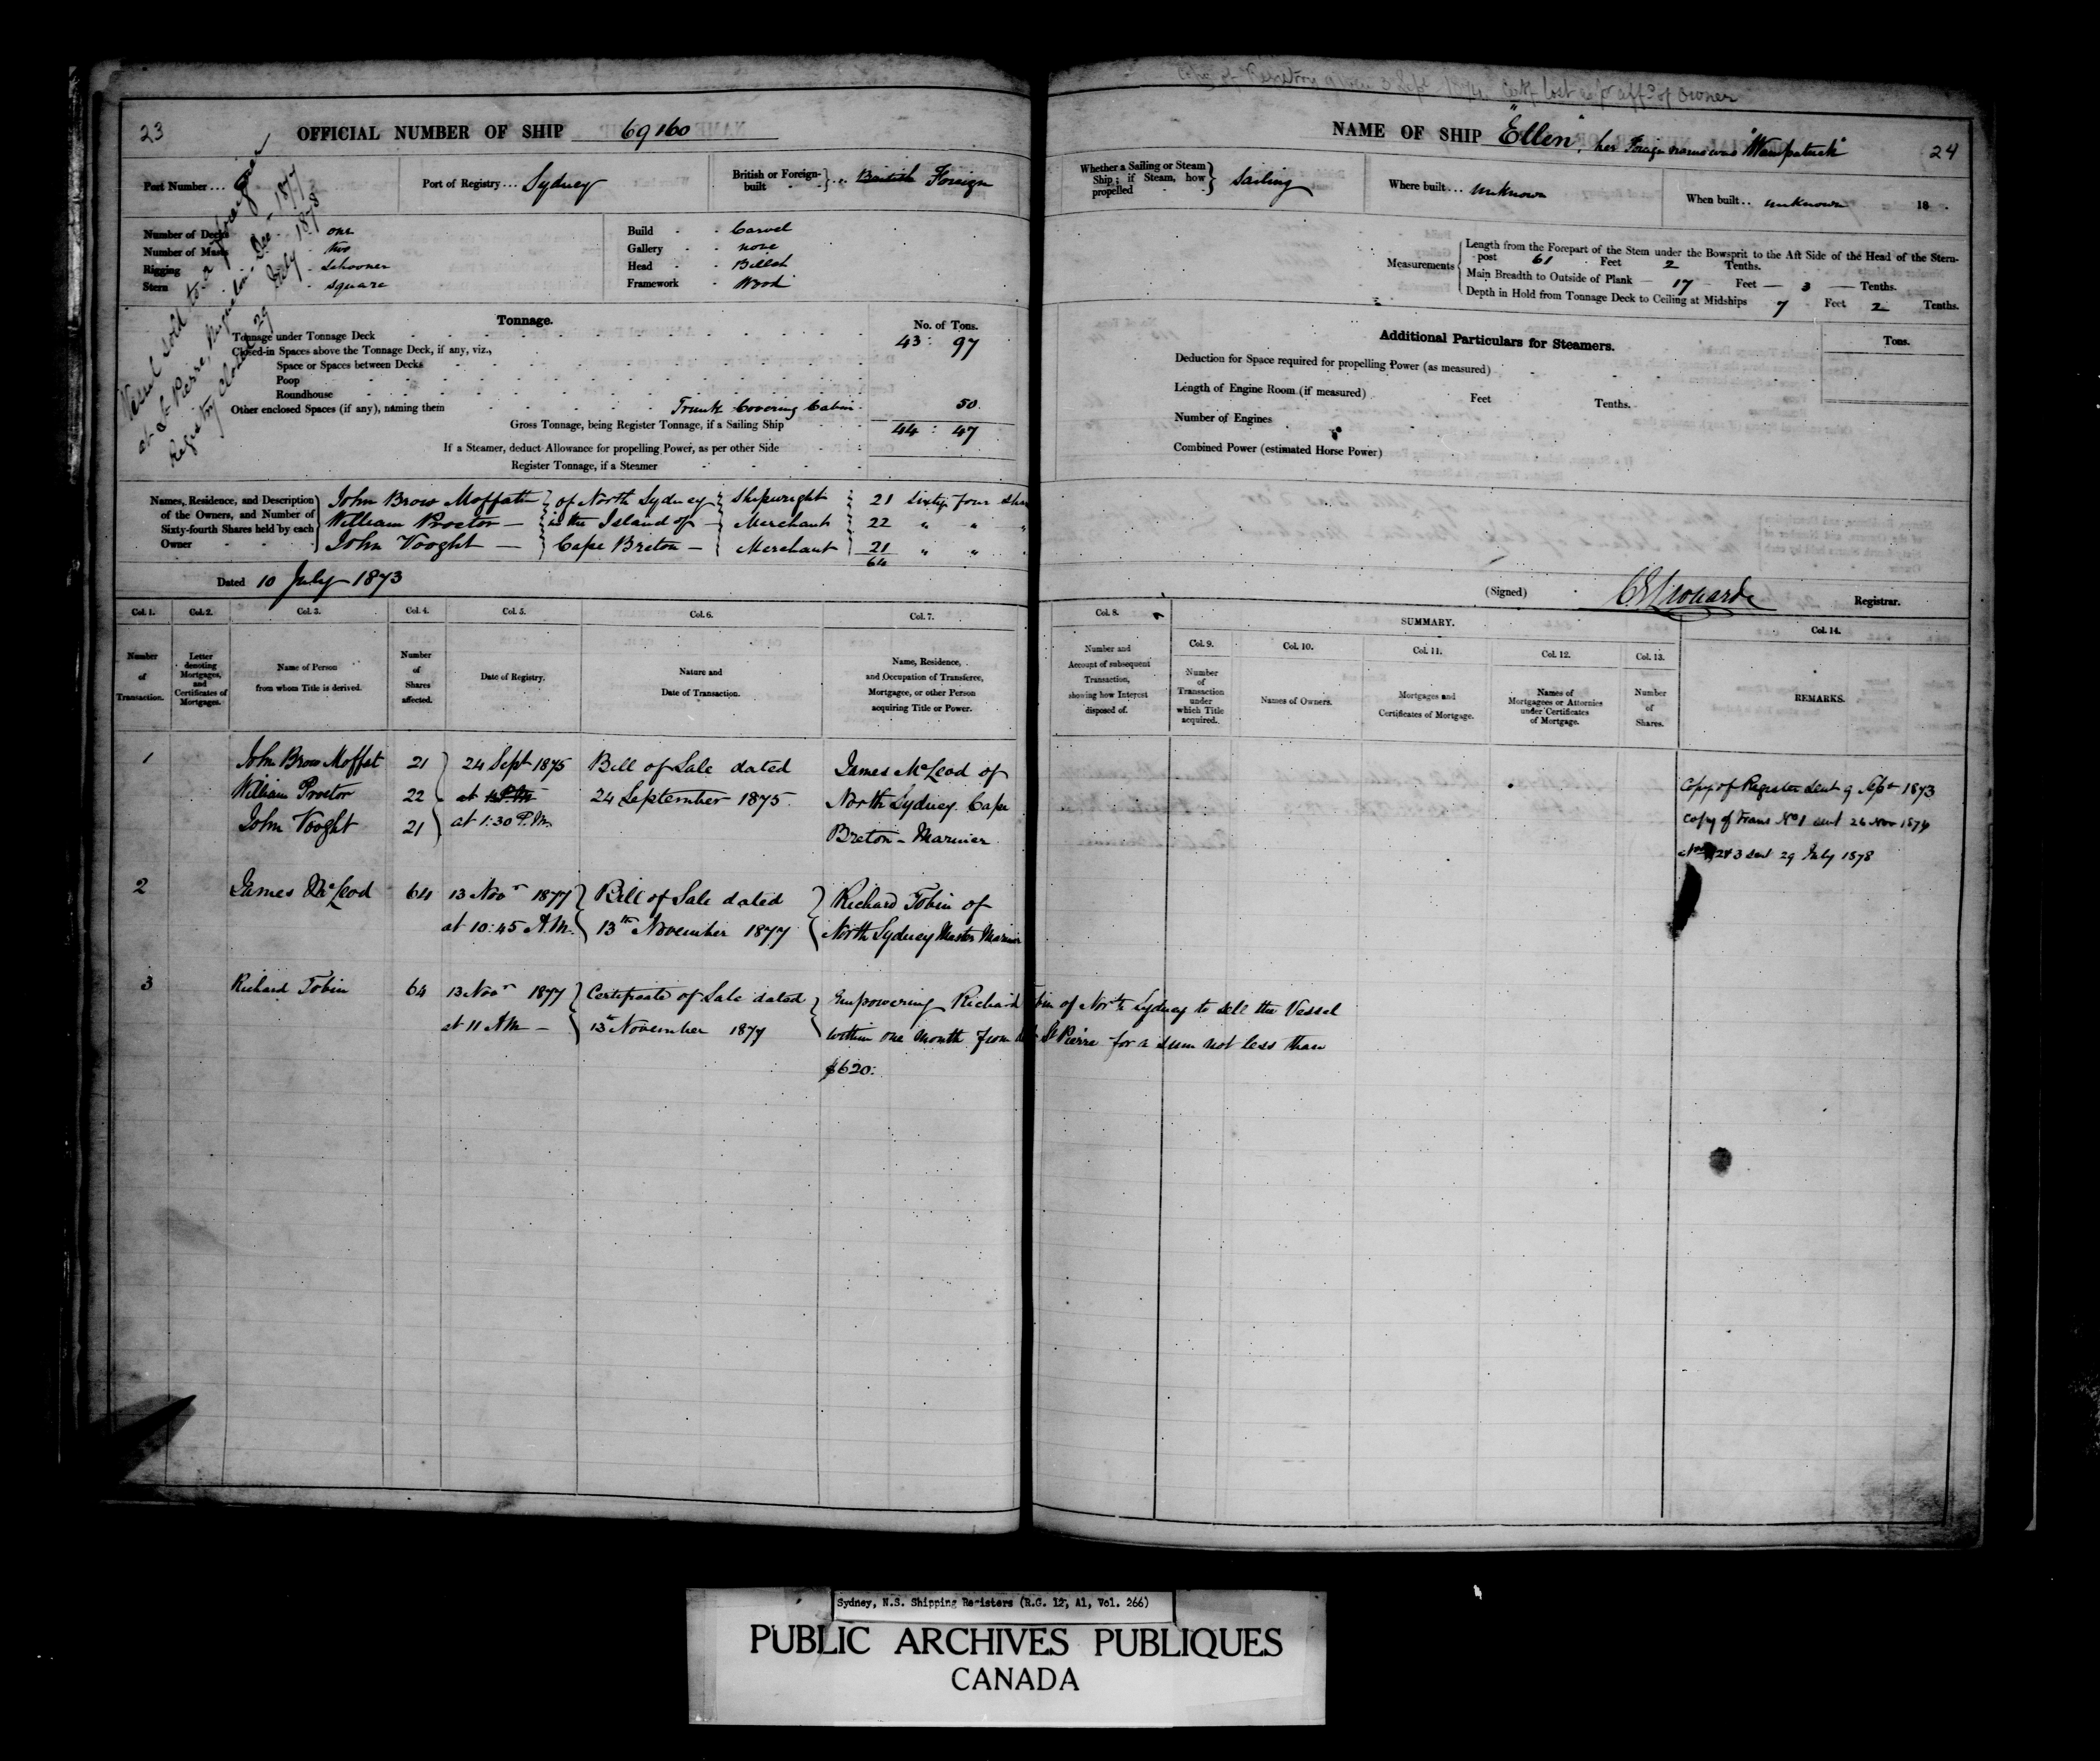 23
OFFICIAL NUMBER OF SHIP 69160
Port Number...
Port of Registry... Sydney
British or Foreign-built }... British Foreign
Vessel sold to a foreigner
at St Pierre, Miquelon Dec - 1877
Registry Closed 29 July 1878
Number of Decks - one
Number of Masts - two
Rigging - Schooner
Stern - square
Build - Carvel
Gallery - none
Head - Billet
Framework - Wood
Tonnage.
No. of Tons.
Tonnage under Tonnage Deck 43 : 97
Closed-in Spaces above the Tonnage Deck, if any, viz.,
Space or Spaces between Decks
Poop
Roundhouse
Other enclosed Spaces (if any), naming them Trunk Covering Cabin 50
Gross Tonnage, being Register Tonnage, if a Sailing Ship 44 : 47
If a Steamer, deduct Allowance for propelling Power, as per other Side
Register Tonnage, if a Steamer
Names, Residence, and Description of the Owners, and Number of Sixty-fourth Shares held by each Owner
John Brow Moffatt } of North Sydney } Shipwright } 21 Sixty four Sha
William Proctor — } in the Island of — } Merchant } 22 " "
John Vooght — } Cape Breton — } Merchant } 21 " "
64
Dated 10 July 1873
Col. 1. Col. 2. Col. 3. Col. 4. Col. 5. Col. 6. Col. 7.
Number of Transaction.
Letter denoting Mortgages, and Certificates of Mortgages.
Name of Person from whom Title is derived.
Number of Shares affected.
Date of Registry.
Nature and Date of Transaction.
Name, Residence, and Occupation of Transferee, Mortgagee, or other Person acquiring Title or Power.
1 John Brow Moffat 21 } 24 Sept 1875 Bill of Sale dated James McLeod of
William Proctor 22 at 24 September 1875. North Sydney Cape
John Vooght 21 } at 1:30 P.M. Breton - Mariner
2 James McLeod 64 13 Novr 1877 } Bill of Sale dated } Richard Tobin of
at 10:45 A.M. 13th November 1877 North Sydney Master Mariner
3 Richard Tobin 64 13 Novr 1877 } Certificate of Sale dated } Empowering Richard Tobin of North Sydney to sell the Vessel
at 11 AM — 13th November 1877 within one month from St Pierre for a sum not less than
$620:
Copy of Registry given 3 Sept 1874. Certf lost as pr affd of owner
NAME OF SHIP "Ellen", her Foreign name was "Wampatuck"
24
Whether a Sailing or Steam Ship; if Steam, how propelled } Sailing
Where built... unknown
When built.. unknown 18
Measurements
Length from the Forepart of the Stem under the Bowsprit to the Aft Side of the Head of the Stern-post 61 Feet 2 Tenths.
Main Breadth to Outside of Plank — 17 Feet — 3 — Tenths.
Depth in Hold from Tonnage Deck to Ceiling at Midships 7 Feet 2 Tenths.
Additional Particulars for Steamers.
Tons.
Deduction for Space required for propelling Power (as measured)
Length of Engine Room (if measured) Feet Tenths.
Number of Engines
Combined Power (estimated Horse Power)
(Signed) C E Leonard Registrar.
Col. 8. SUMMARY. Col. 14.
Col. 9. Col. 10. Col. 11. Col. 12. Col. 13.
Number and Account of subsequent Transaction, showing how Interest disposed of.
Number of Transaction under which Title acquired.
Names of Owners.
Mortgages and Certificates of Mortgage.
Names of Mortgagees or Attornies under Certificates of Mortgage.
Number of Shares.
REMARKS.
Copy of Register sent 9 Sept 1873
Copy of Trans No 1 sent 26 Nov 1876
2 & 3 sent 29 July 1878
Sydney, N.S. Shipping Registers (R.G. 12, A1, Vol. 266)
PUBLIC ARCHIVES PUBLIQUES
CANADA